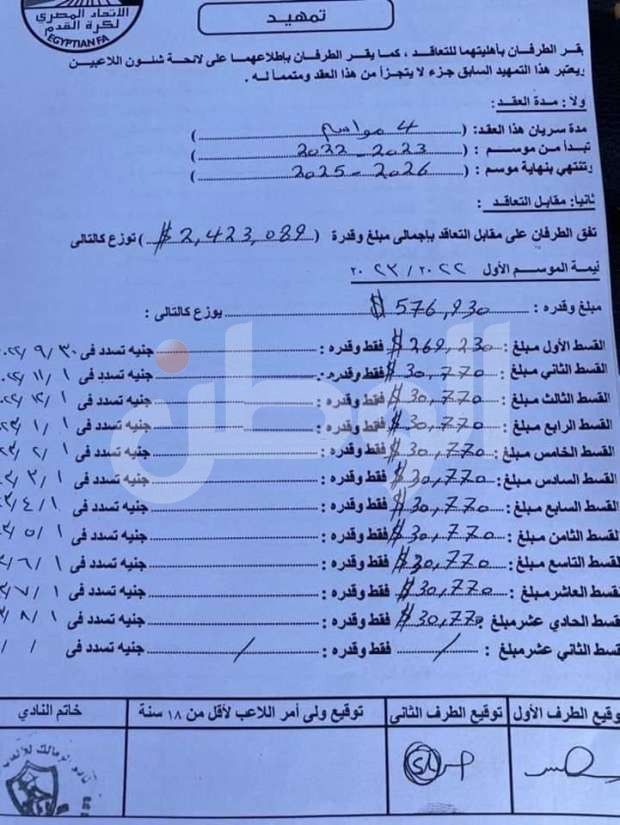 الاتحاد المصري
لكرة القدم
EGYPTIAN FA
تمهيد
يقر الطرفان بأهليتهما للتعاقد ، كما يقر الطرفان بإطلاعهما على لائحة شئون اللاعبين
ويعتبر هذا التمهيد السابق جزء لا يتجزأ من هذا العقد ومتمماً له .
ولا : مدة العقد :
مدة سريان هذا العقد : ( 4 مواسم )
تبدأ من موسم : ( 2022 - 2023 )
وتنتهي بنهاية موسم : ( 2025 - 2026 )
ثانيا : مقابل التعاقد :
تفق الطرفان على مقابل التعاقد بإجمالى مبلغ وقدرة ( $ 2,423,089 ) توزع كالتالى
قيمة الموسم الأول ٢٠٢٢ / ٢٠٢٣
مبلغ وقدره : $ 576,930 يوزع كالتالى :
القسط الأول مبلغ : $ 269,230 فقط وقدره : جنيه تسدد فى ٣٠ / ٩ /
القسط الثانى مبلغ : $ 30,770 فقط وقدره : جنيه تسدد فى ١ / ١١ /
القسط الثالث مبلغ : $ 30,770 فقط وقدره : جنيه تسدد فى ١ / ١٢ /
القسط الرابع مبلغ : $ 30,770 فقط وقدره : جنيه تسدد فى ١ / ١ /
القسط الخامس مبلغ : $ 30,770 فقط وقدره : جنيه تسدد فى ١ / ٢ /
القسط السادس مبلغ : $ 30,770 فقط وقدره : جنيه تسدد فى ١ / ٣ /
القسط السابع مبلغ : $ 30,770 فقط وقدره : جنيه تسدد فى ١ / ٤ /
القسط الثامن مبلغ : $ 30,770 فقط وقدره : جنيه تسدد فى ١ / ٥ /
القسط التاسع مبلغ : $ 30,770 فقط وقدره : جنيه تسدد فى ١ / ٦ /
القسط العاشر مبلغ : $ 30,770 فقط وقدره : جنيه تسدد فى ١ / ٧ /
القسط الحادي عشر مبلغ : $ 30,770 فقط وقدره : جنيه تسدد فى ١ / ٨ /
القسط الثاني عشر مبلغ : / فقط وقدره : / جنيه تسدد فى / /
توقيع الطرف الأول توقيع الطرف الثانى توقيع ولى أمر اللاعب لأقل من ١٨ سنة خاتم النادي
الوطن